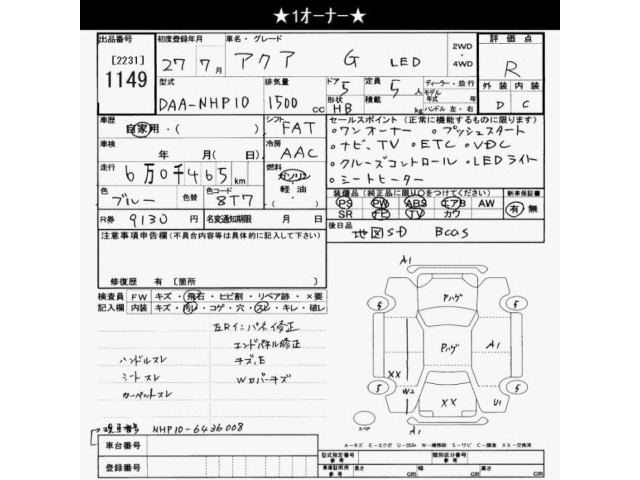 ★1オーナー★
出品番号 初度登録年月 車名・グレード 2WD・4WD 評価点
[2231] 1149
27年 7月 アクア G LED R
型式 排気量 ドア 5 定員 5人 ディーラー・並行 外装 内装
DAA-NHP10 1500cc 形状 HB 積載 kg モデル年式 年 ハンドル 左・右 D C
車歴 自家用・( ) シフト FAT セールスポイント (正常に機能するものに限ります)
・ワンオーナー ・プッシュスタート
車検 年 月(日) 冷房 AAC ・ナビ、TV ・ETC ・VDC
走行 6万0千465km 燃料 ガソリン 軽油 ・クルーズコントロール ・LEDライト
・シートヒーター
色 ブルー 色替 色コード 8T7 装備品 (純正品に限り○をつけてください) 新車保証書
PS PW ABS エアB AW 有・無
SR ナビ TV カワ
R券 9130円 名変通知期限 月 日 後日品 地図SD Bcas
注意事項申告欄(不具合内容等は具体的に記入して下さい)
修復歴 有 [箇所 ]
検査員記入欄 FW キズ・飛石・ヒビ割・リペア跡・×要
内装 キズ・汚レ・コゲ・穴・スレ・キレ・破レ
左Rインパネイ修正
エンドパネル修正
ハンドルスレ キズ、E
シートスレ Wロバーキズ
カーペットスレ
現車番号 NHP10-6436008
A1
5 Pハゲ 5
Pハゲ A1
XX W2
5 XX U1 5
スペア A1
A-キズ E-エクボ U-凹み W-補修跡 S-サビ C-腐食 XX-交換済
車台番号
登録番号
型式指定番号 参考 類別区分番号 参考
車庫証明用 参考 長さ cm 幅 cm 高さ cm